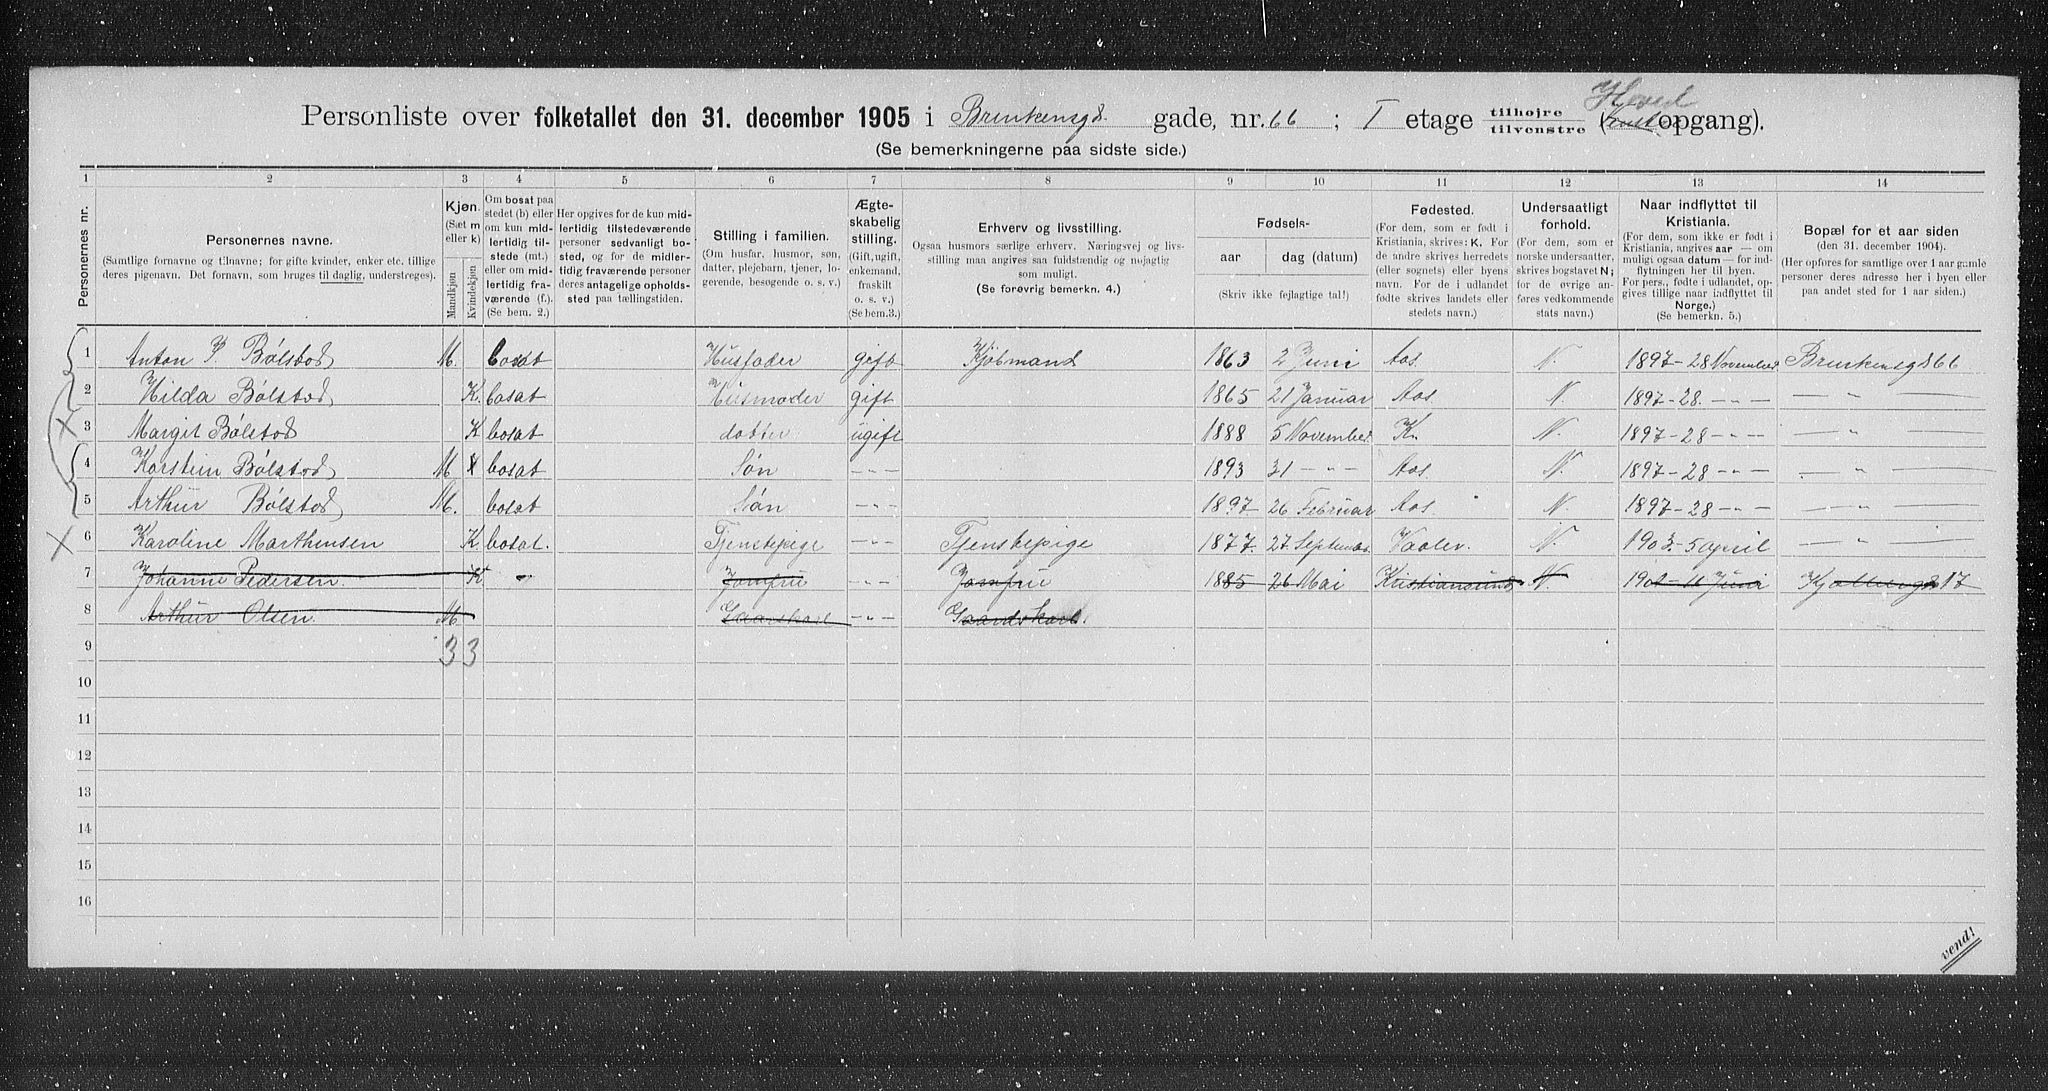 Personliste over folketallet den 31. december 1905 i Brinkensgd. gade, nr. 66 ; I etage tilhøjre tilvenstre (Hoved opgang).
(Se bemerkningerne paa sidste side.)
1 2 3 4 5 6 7 8 9 10 11 12 13 14
Personernes nr.
Personernes navne.
(Samtlige fornavne og tilnavne; for gifte kvinder, enker etc. tillige deres pigenavn. Det fornavn, som bruges til daglig, understreges).
Kjøn.
(Sæt m eller k)
Mandkjøn
Kvindekjøn
Om bosat paa stedet (b) eller om kun midlertidig tilstede (mt.) eller om midlertidig fraværende (f.). (Se bem. 2.)
Her opgives for de kun midlertidig tilstedeværende personer sedvanligt bosted, og for de midlertidig fraværende personer deres antagelige opholdssted paa tællingstiden.
Stilling i familien.
(Om husfar, husmor, søn, datter, plejebarn, tjener, logerende, besøgende o. s. v.)
Ægteskabelig stilling.
(Gift, ugift, enkemand, fraskilt o. s. v.)
(Se bem.3.)
Erhverv og livsstilling.
Ogsaa husmors særlige erhverv. Næringsvej og livsstilling maa angives saa fuldstændig og nøjagtig som muligt.
(Se forøvrig bemerkn. 4.)
Fødsels-
aar dag (datum)
(Skriv ikke fejlagtige tal!)
Fødested.
(For dem, som er født i Kristiania, skrives: K. For de andre skrives herredets (eller sognets) eller byens navn. For de i udlandet fødte skrives landets eller stedets navn.)
Undersaatligt forhold.
(For dem, som er norske undersaatter, skrives bogstavet N; for de øvrige anføres vedkommende stats navn.)
Naar indflyttet til Kristiania.
(For dem, som ikke er født i Kristiania, angives aar — om muligt ogsaa datum — for indflytningen her til byen. For pers., født i udlandet, opgives tillige naar indflyttet til Norge.)
(Se bemerkn. 5.)
Bopæl for et aar siden
(den 31. december 1904).
(Her opføres for samtlige over 1 aar gamle personer deres adresse her i byen eller paa andet sted for 1 aar siden.)
1 Anton P. Bølstad M. bosat Husfader gift Kjøbmand 1863 2 Juni Aas. N. 1897 - 28 November Brinkensgd 66
2 Hilda Bølstad K. bosat Husmoder gift 1865 21 Januar Aas N. 1897 - 28. - " - — " —
3 Margit Bølstad K bosat datter ugift 1888 5 November K. N. 1897 - 28 - " - — " —
4 Karstein Bølstad M bosat Søn - " - 1893 31 - " - Aas. N. 1897 - 28 - " - — " —
5 Arthur Bølstad M. bosat Søn - " - 1897 26 Februar Aas. N. 1897 - 28 - " - — " —
6 Karoline Marthinsen K. bosat. Tjenstepige - " - Tjenstepige 1877. 27. Septemb. Vaaler. N. 1903. 5 april — " —
7 Johanne Pedersen. K - Jomfru - " - Jomfru 1885 26 Mai Kristiansund N. Juni 17
8 Arthur Olsen. M. Gaardskarl - " - Gaardskarl.
9 3 3
10
11
12
13
14
15
16
vend!